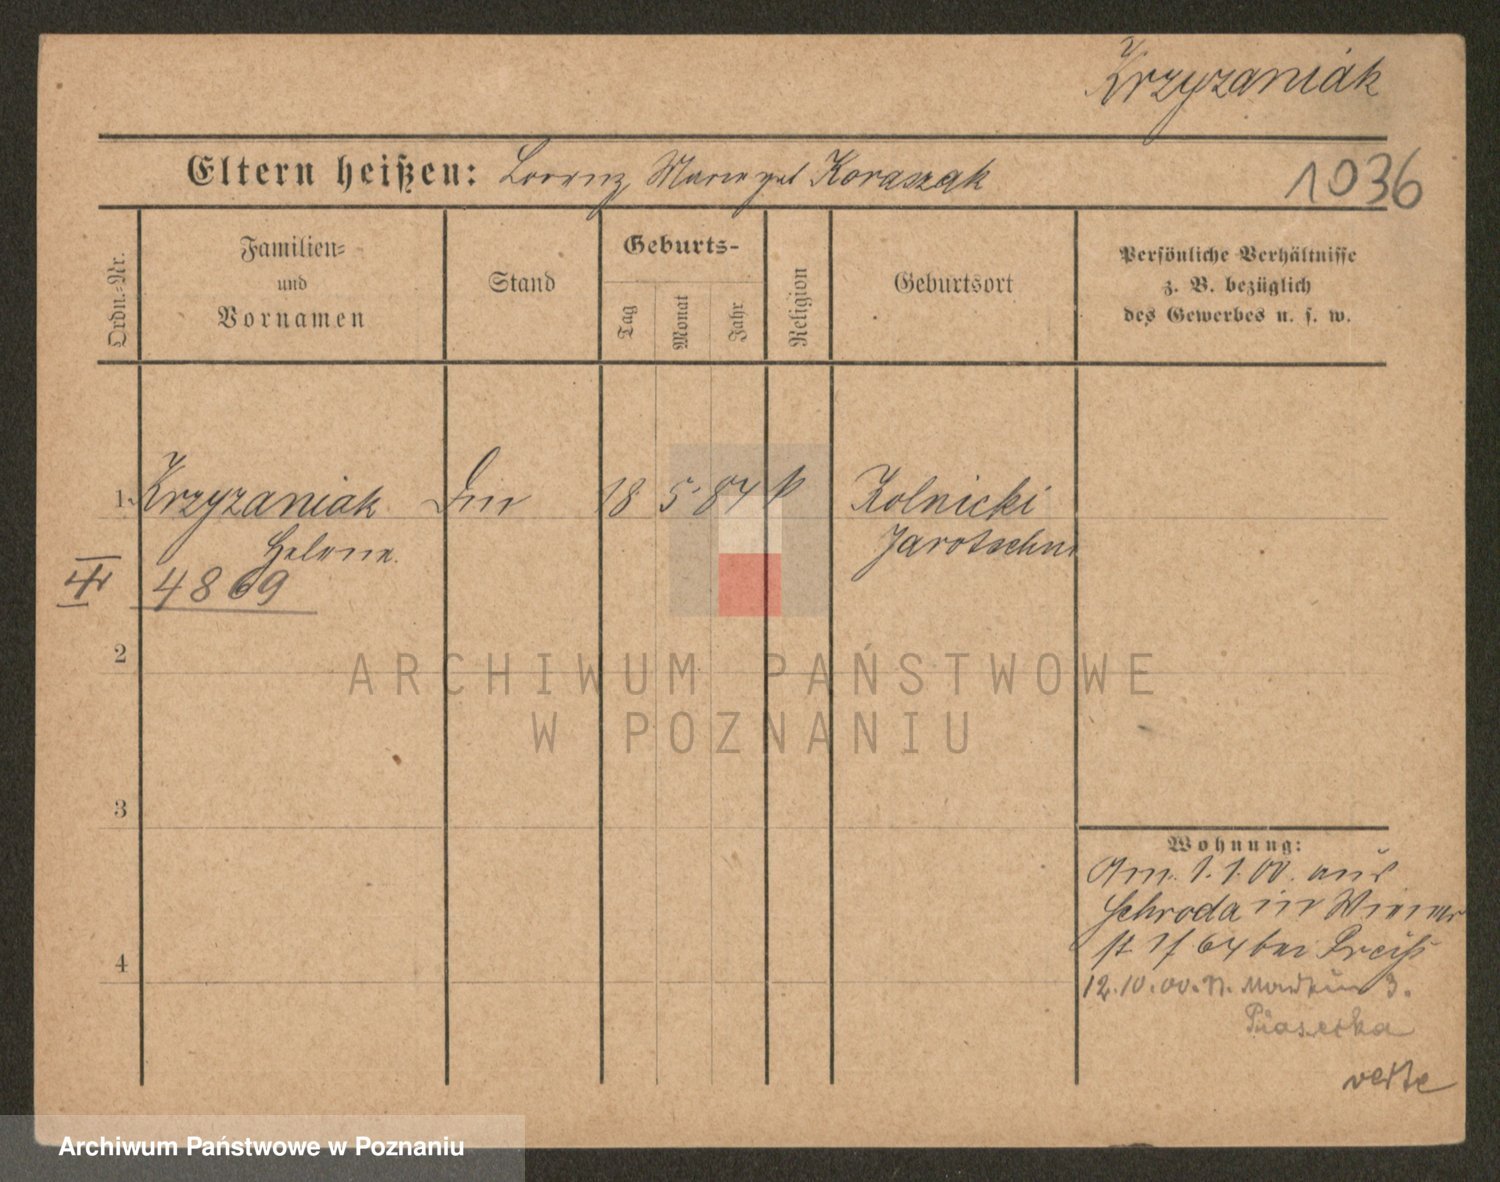 Krzyzaniak
Eltern heißen: Lorenz, Marie gel Koraszak
1036
Ordn.-Nr.
Familien-
und
Vornamen
Stand
Geburts-
Tag
Monat
Jahr
Religion
Geburtsort
Persönliche Verhältnisse
z. B. bezüglich
des Gewerbes u. s. w.
1. Krzyzaniak Din 18 5 84 k Kolnicki
Helene. Jarotschin
4869
2
3
4
Wohnung:
Am 1.1.00. aus
Schroda in Wiener
st 64 bei Preiß
12.10.00. n. 3.
Piasecka
verte
ARCHIWUM PAŃSTWOWE
W POZNANIU
Archiwum Państwowe w Poznaniu